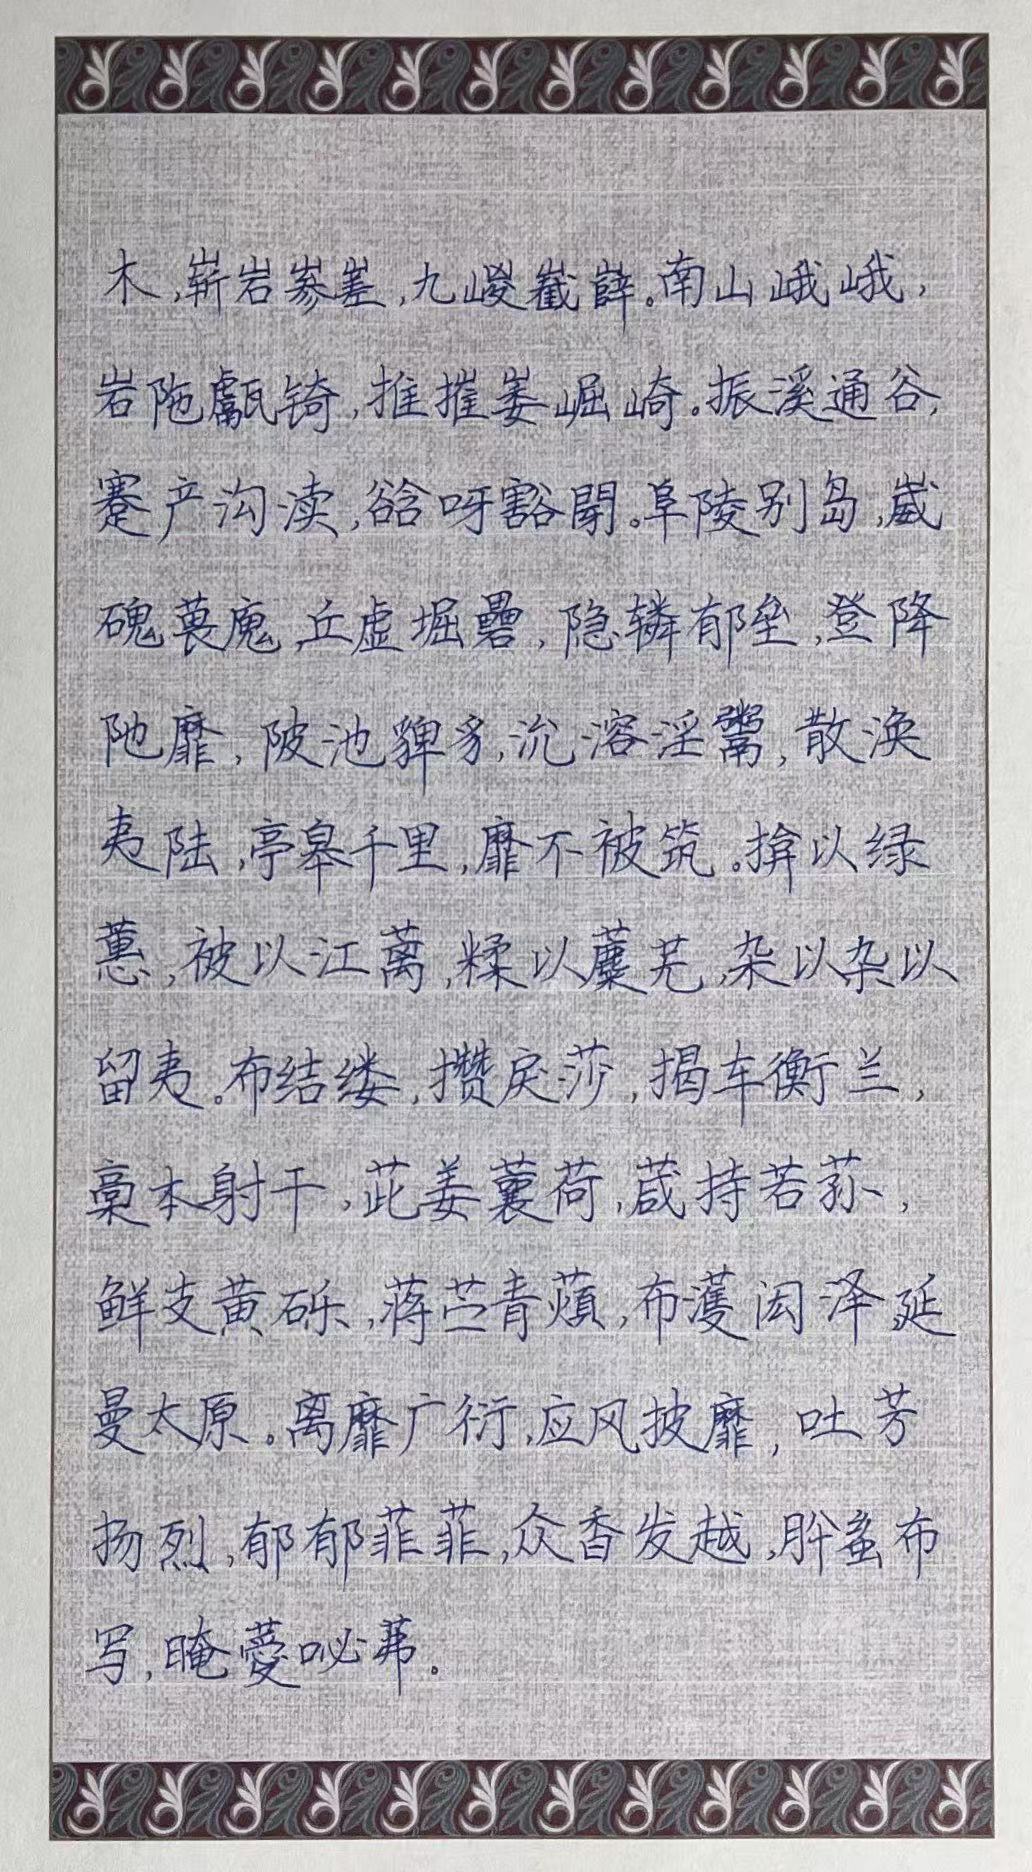 木,崭岩嵾嵳,九嵕嶻嶭。南山峨峨,
岩陁甗锜,推摧崣崛崎。振溪通谷,
蹇产沟渎,谽呀豁閕。阜陵别岛,崴
磈葨廆,丘虚堀礨,隐辚郁垒,登降
阤靡,陂池貏豸,沇溶淫鬻,散涣
夷陆,亭皋千里,靡不被筑。揜以绿
蕙,被以江蓠,糅以蘪芜,杂以杂以
留夷。布结缕,攒戾莎,揭车衡兰,
稾本射干,茈姜蘘荷,葴持若荪,
鲜支黄砾,蒋苎青薠,布濩闳泽,延
曼太原。离靡广衍,应风披靡,吐芳
扬烈,郁郁菲菲,众香发越,肸蚃布
写,晻薆咇茀。